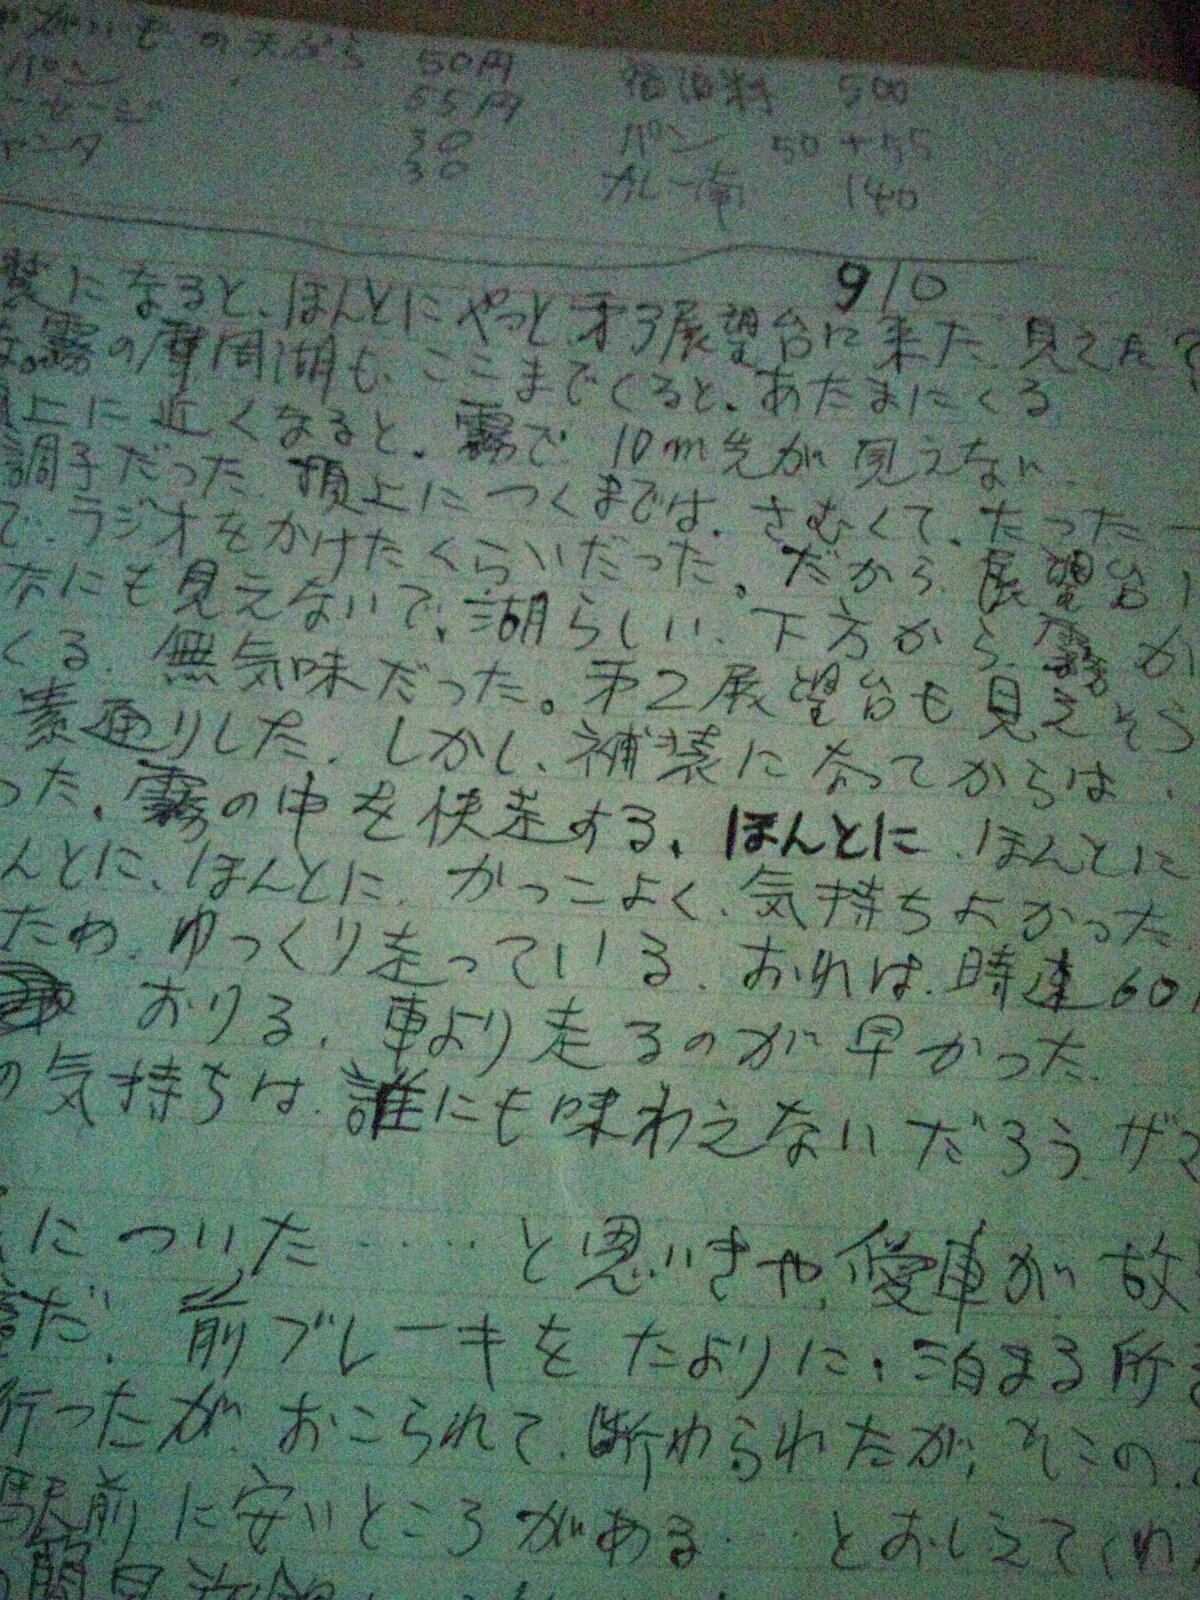 の天ぷら 50円 宿泊料 500
パン 55円 パン 50+55
30
30 カレー 140
9/10
になると、ほんとにやっと、第3展望台に来た、見えた
霧の摩周湖も、ここまでくると、あたまにくる
上に近くなると、霧で、10m先が見えない
調子だった、頂上につくまでは、さむくて、たった
で、ラジオをかけたくらいだった。だから、展望台
なにも見えないで、湖らしい、下方から、霧が
くる、無気味だった。第2展望台も見えそう
素通りした、しかし、補装になってからは、
った、霧の中を快走する、ほんとに、ほんとに
んとに、ほんとに、かっこよく、気持ちよかった
ため、ゆっくり走っている、おれは、時速60
おりる、車より走るのが早かった、
の気持ちは、誰にも味わえないだろう、ザマ
についた・・・・・と思いきや、愛車が故
だ、前ブレーキをたよりに、泊まる所
行ったが、おこられて、断わられたが、そこの
駅前に安いところがある・・・・とおしえてくれ